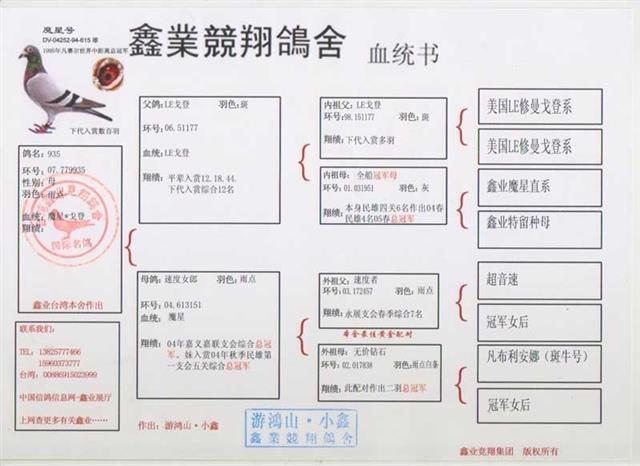 魔星号
DV-04252-94-615 雄
1995年凡赛尔世界中距离总冠军
鑫業競翔鴿舍 血统书
下代入赏数百羽
鸽名: 935
环号: 07.779935
性别: 母
羽色: 雨点
血统: 魔星*戈登
翔绩:
国际名鸽
鑫业台湾本舍作出
联系我们:
TEL: 13825777466
15960373777
台湾: 00886915023999
中国信鸽信息网-鑫业展厅
上网查更多有关鑫业……
父鸽: LE戈登 羽色: 斑
环号: 06.51177
血统: LE戈登
翔绩: 平辈入赏12.18.44.
下代入赏综合12名
母鸽: 速度女郎 羽色: 雨点
环号: 04.613151
血统: 魔星
翔绩: 04年嘉义嘉联支会综合总冠
军、妹入赏04年秋季民雄第
一支会五关综合总冠军
作出: 游鸿山·小鑫
内祖父: LE戈登 羽色: 斑
环号: 98.151177
翔绩: 下代入赏多羽
内祖母: 全船冠军母
环号: 01.031951 羽色: 灰
翔绩: 本身民雄四关6名作出04春
民雄4名05春总冠军
外祖父: 速度者
环号: 03.172457 羽色: 雨点
翔绩: 永展支会春季综合7名
本舍最佳黄金配对
外祖母: 无价钻石
环号: 02.017838 羽色: 雨点白条
翔绩: 此配对作出二羽总冠军
游鸿山·小鑫
鑫業競翔鴿舍
美国LE修曼戈登系
美国LE修曼戈登系
鑫业魔星直系
鑫业特留种母
超音速
冠军女后
凡布利安娜（斑牛号）
冠军女后
鑫业竞翔集团 版权所有